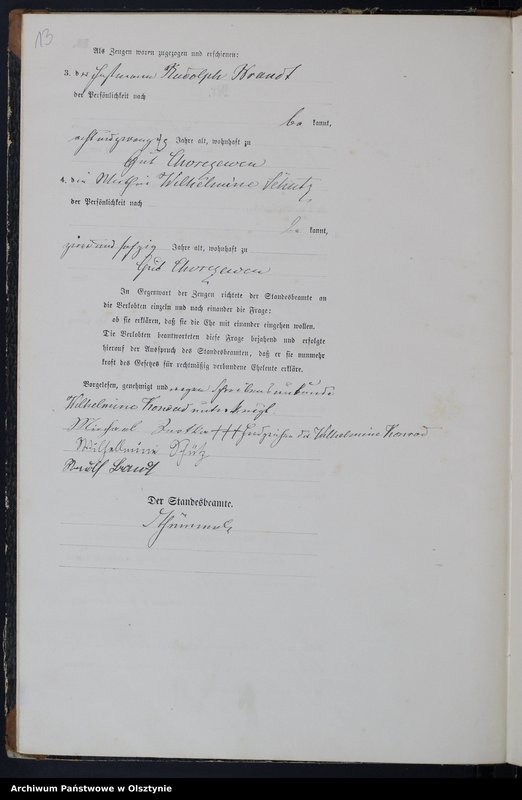 13
Als Zeugen waren zugezogen und erschienen:
3. der Instmann Rudolph Brandt
der Persönlichkeit nach
be kannt,
achtundzwanzig Jahre alt, wohnhaft zu
Gut Choszewen
4. die Wirthin Wilhelmine Schütz
der Persönlichkeit nach
be kannt,
zweiundfünfzig Jahre alt, wohnhaft zu
Gut Choszewen
In Gegenwart der Zeugen richtete der Standesbeamte an
die Verlobten einzeln und nach einander die Frage:
ob sie erklären, daß sie die Ehe mit einander eingehen wollen.
Die Verlobten beantworteten diese Frage bejahend und erfolgte
hierauf der Ausspruch des Standesbeamten, daß er sie nunmehr
kraft des Gesetzes für rechtmäßig verbundene Eheleute erkläre.
Vorgelesen, genehmigt und wegen Schreibensunkunde
Wilhelmine Konrad unterkreuzt
Michael +++ Handzeichen der Wilhelmine Konrad
Wilhelmine Schütz
Rudolf Brandt
Der Standesbeamte.
Archiwum Państwowe w Olsztynie